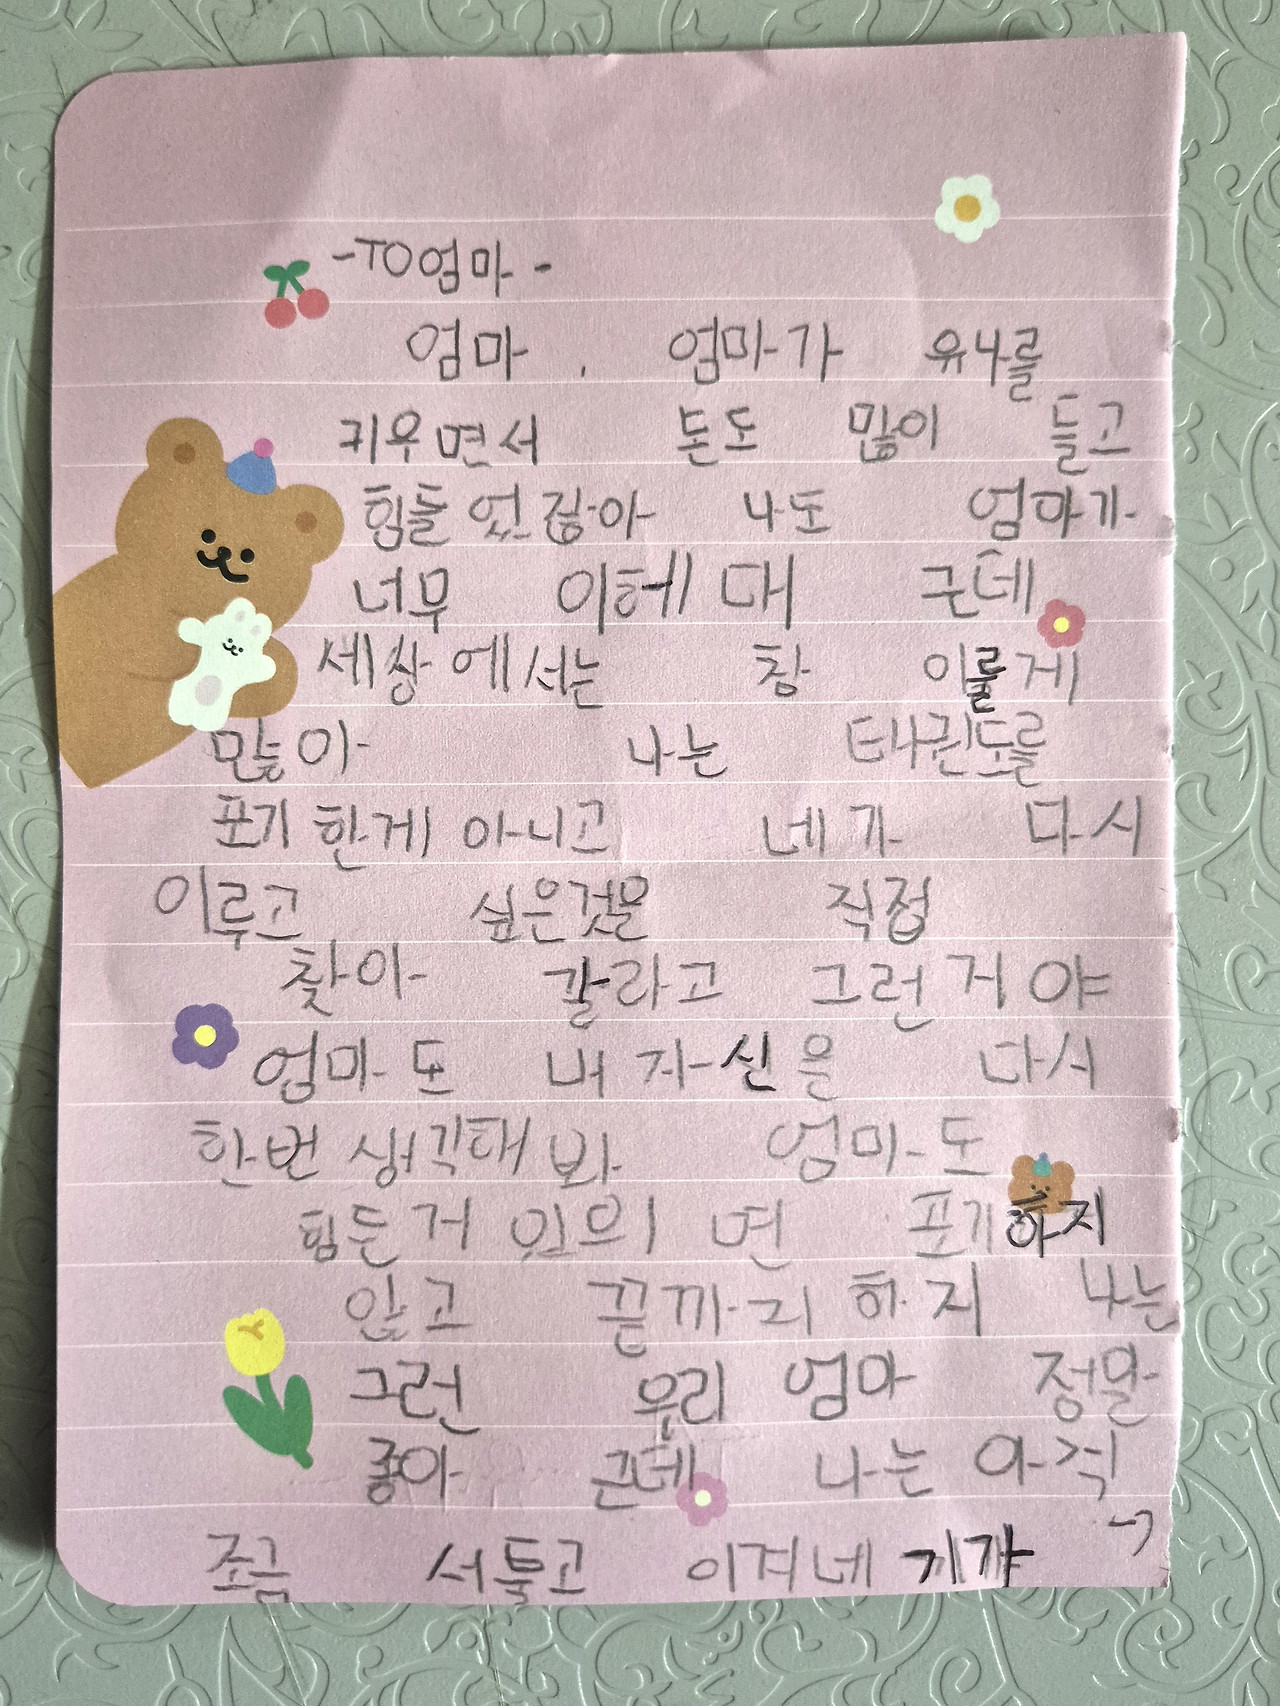 -TO엄마-
엄마. 엄마가 유나를
키우면서 돈도 많이 들고
힘들었잖아 나도 엄마가
너무 이헤돼 근데
세상에서는 참 이룰게
많아 나는 태권도를
포기한게 아니고 네가 다시
이루고 싶은것을 직접
찾아 갈라고 그런거야
엄마도 내 자신을 다시
한번 생각해봐 엄마도
힘든거 있으면 포기하지
않고 끝까지 하지 나는
그런 우리 엄마 정말
좋아 근데 나는 아직
조금 서툴고 이겨네